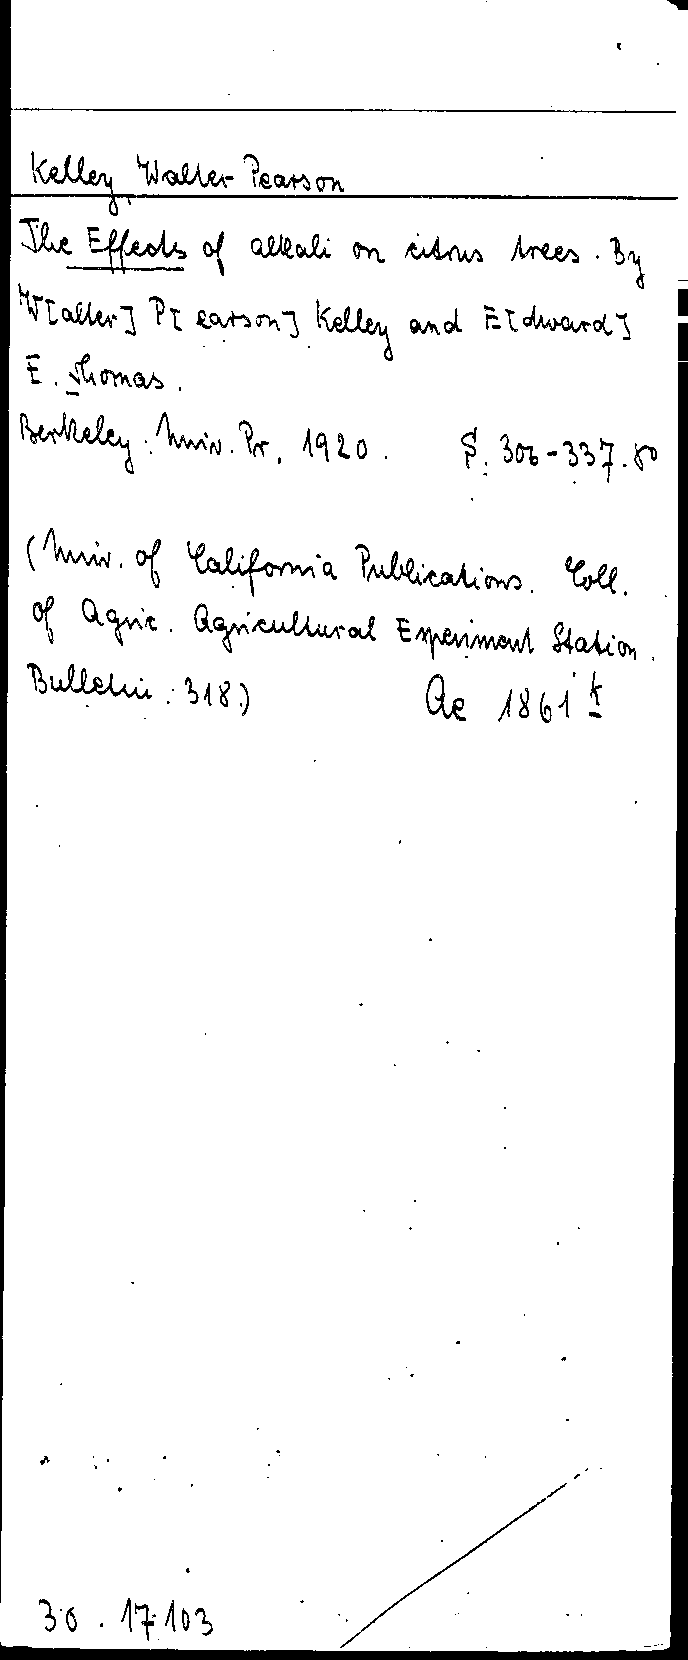 Kelley, Walter Pearson
The Effects of alkali on citrus trees. By
W[alter] P[earson] Kelley and E[dward]
E. Thomas.
Berkeley: Univ. Pr. 1920. S. 306-337. 8°
(Univ. of California Publications. Coll.
of Agric. Agricultural Experiment Station.
Bulletin. 318.) Ae 1861 k
30. 17103